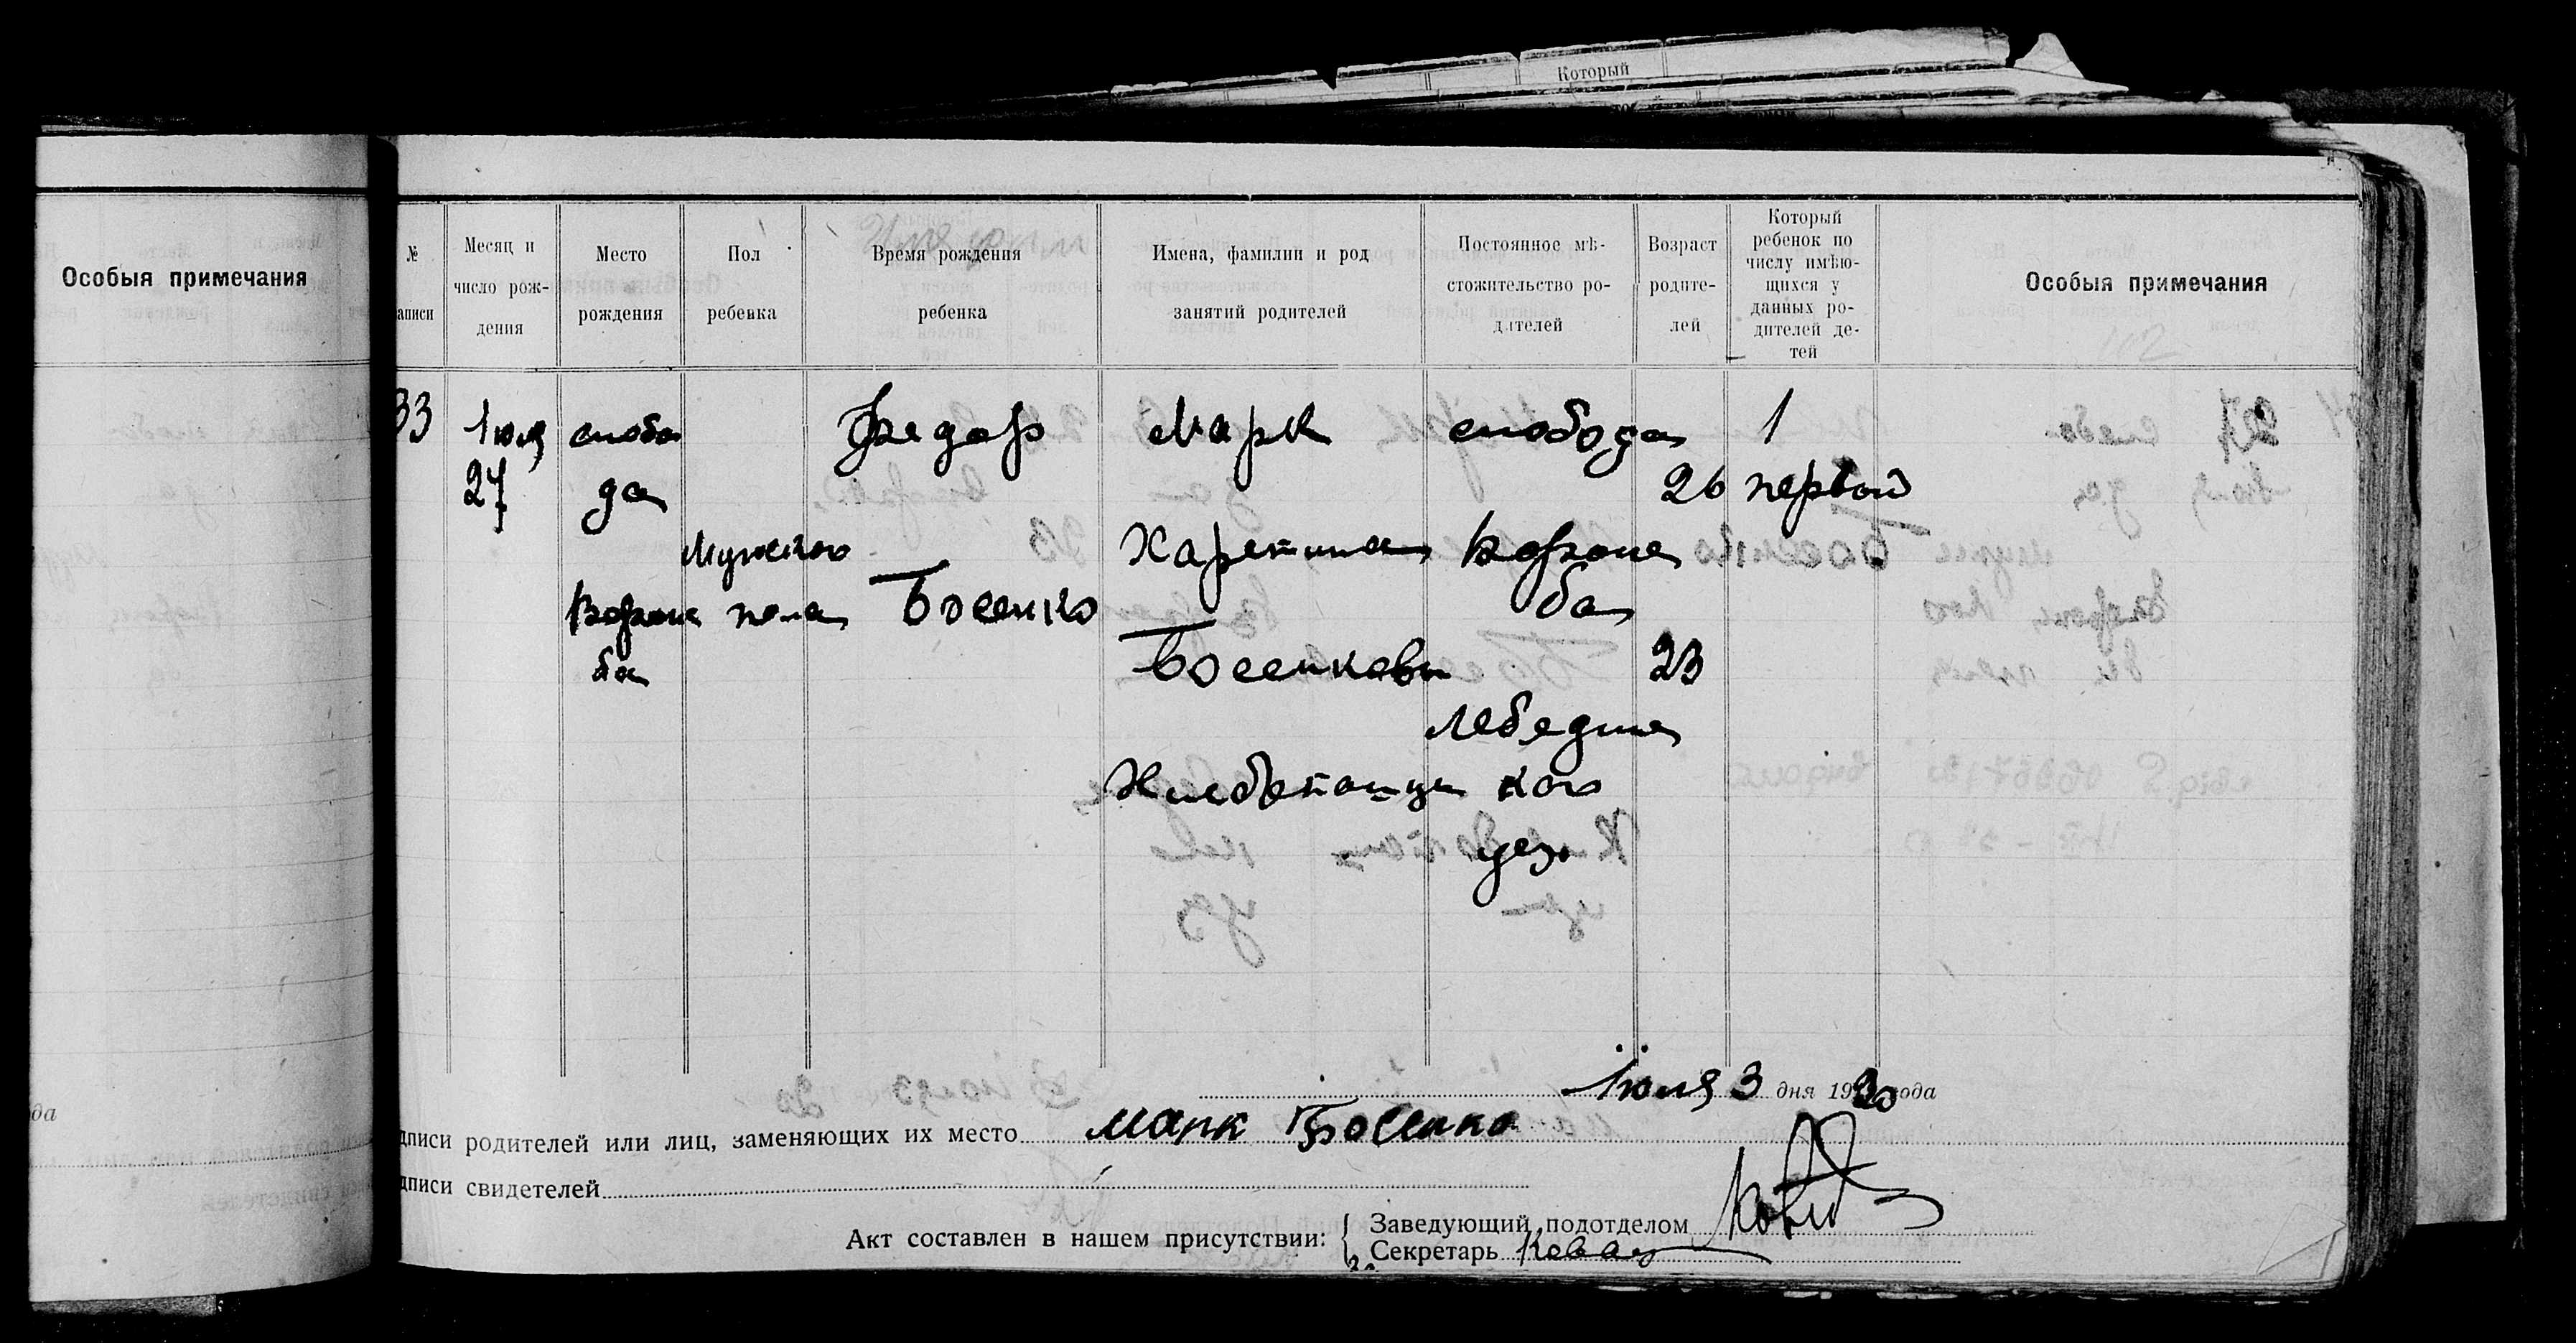 Который
Особыя примечания
№
аписи
Месяц и
число рож-
дения
Место
рождения
Пол
ребенка
Время рождения
ребенка
Имена, фамилии и род
занятий родителей
Постоянное мѣ-
стожительство ро-
дителей
Возраст
родите-
лей
Который
ребенок по
числу имѣю-
щихся у
данных ро-
дителей де-
тей
Особыя примечания
33
Июля
27
слобо
да
Вороже
ба
Мужского
пола
Федор
Босенко
Марк
Харетина
Босенковы
Хлебопашцы
слобода
Вороже
ба
Лебедине
кого
уез
26
23
1
первой
Июля 3 дня 1920 года
да
дписи родителей или лиц, заменяющих их место Марк Босенко
дписи свидетелей
Акт составлен в нашем присутствии:
Заведующий подотделом
Секретарь